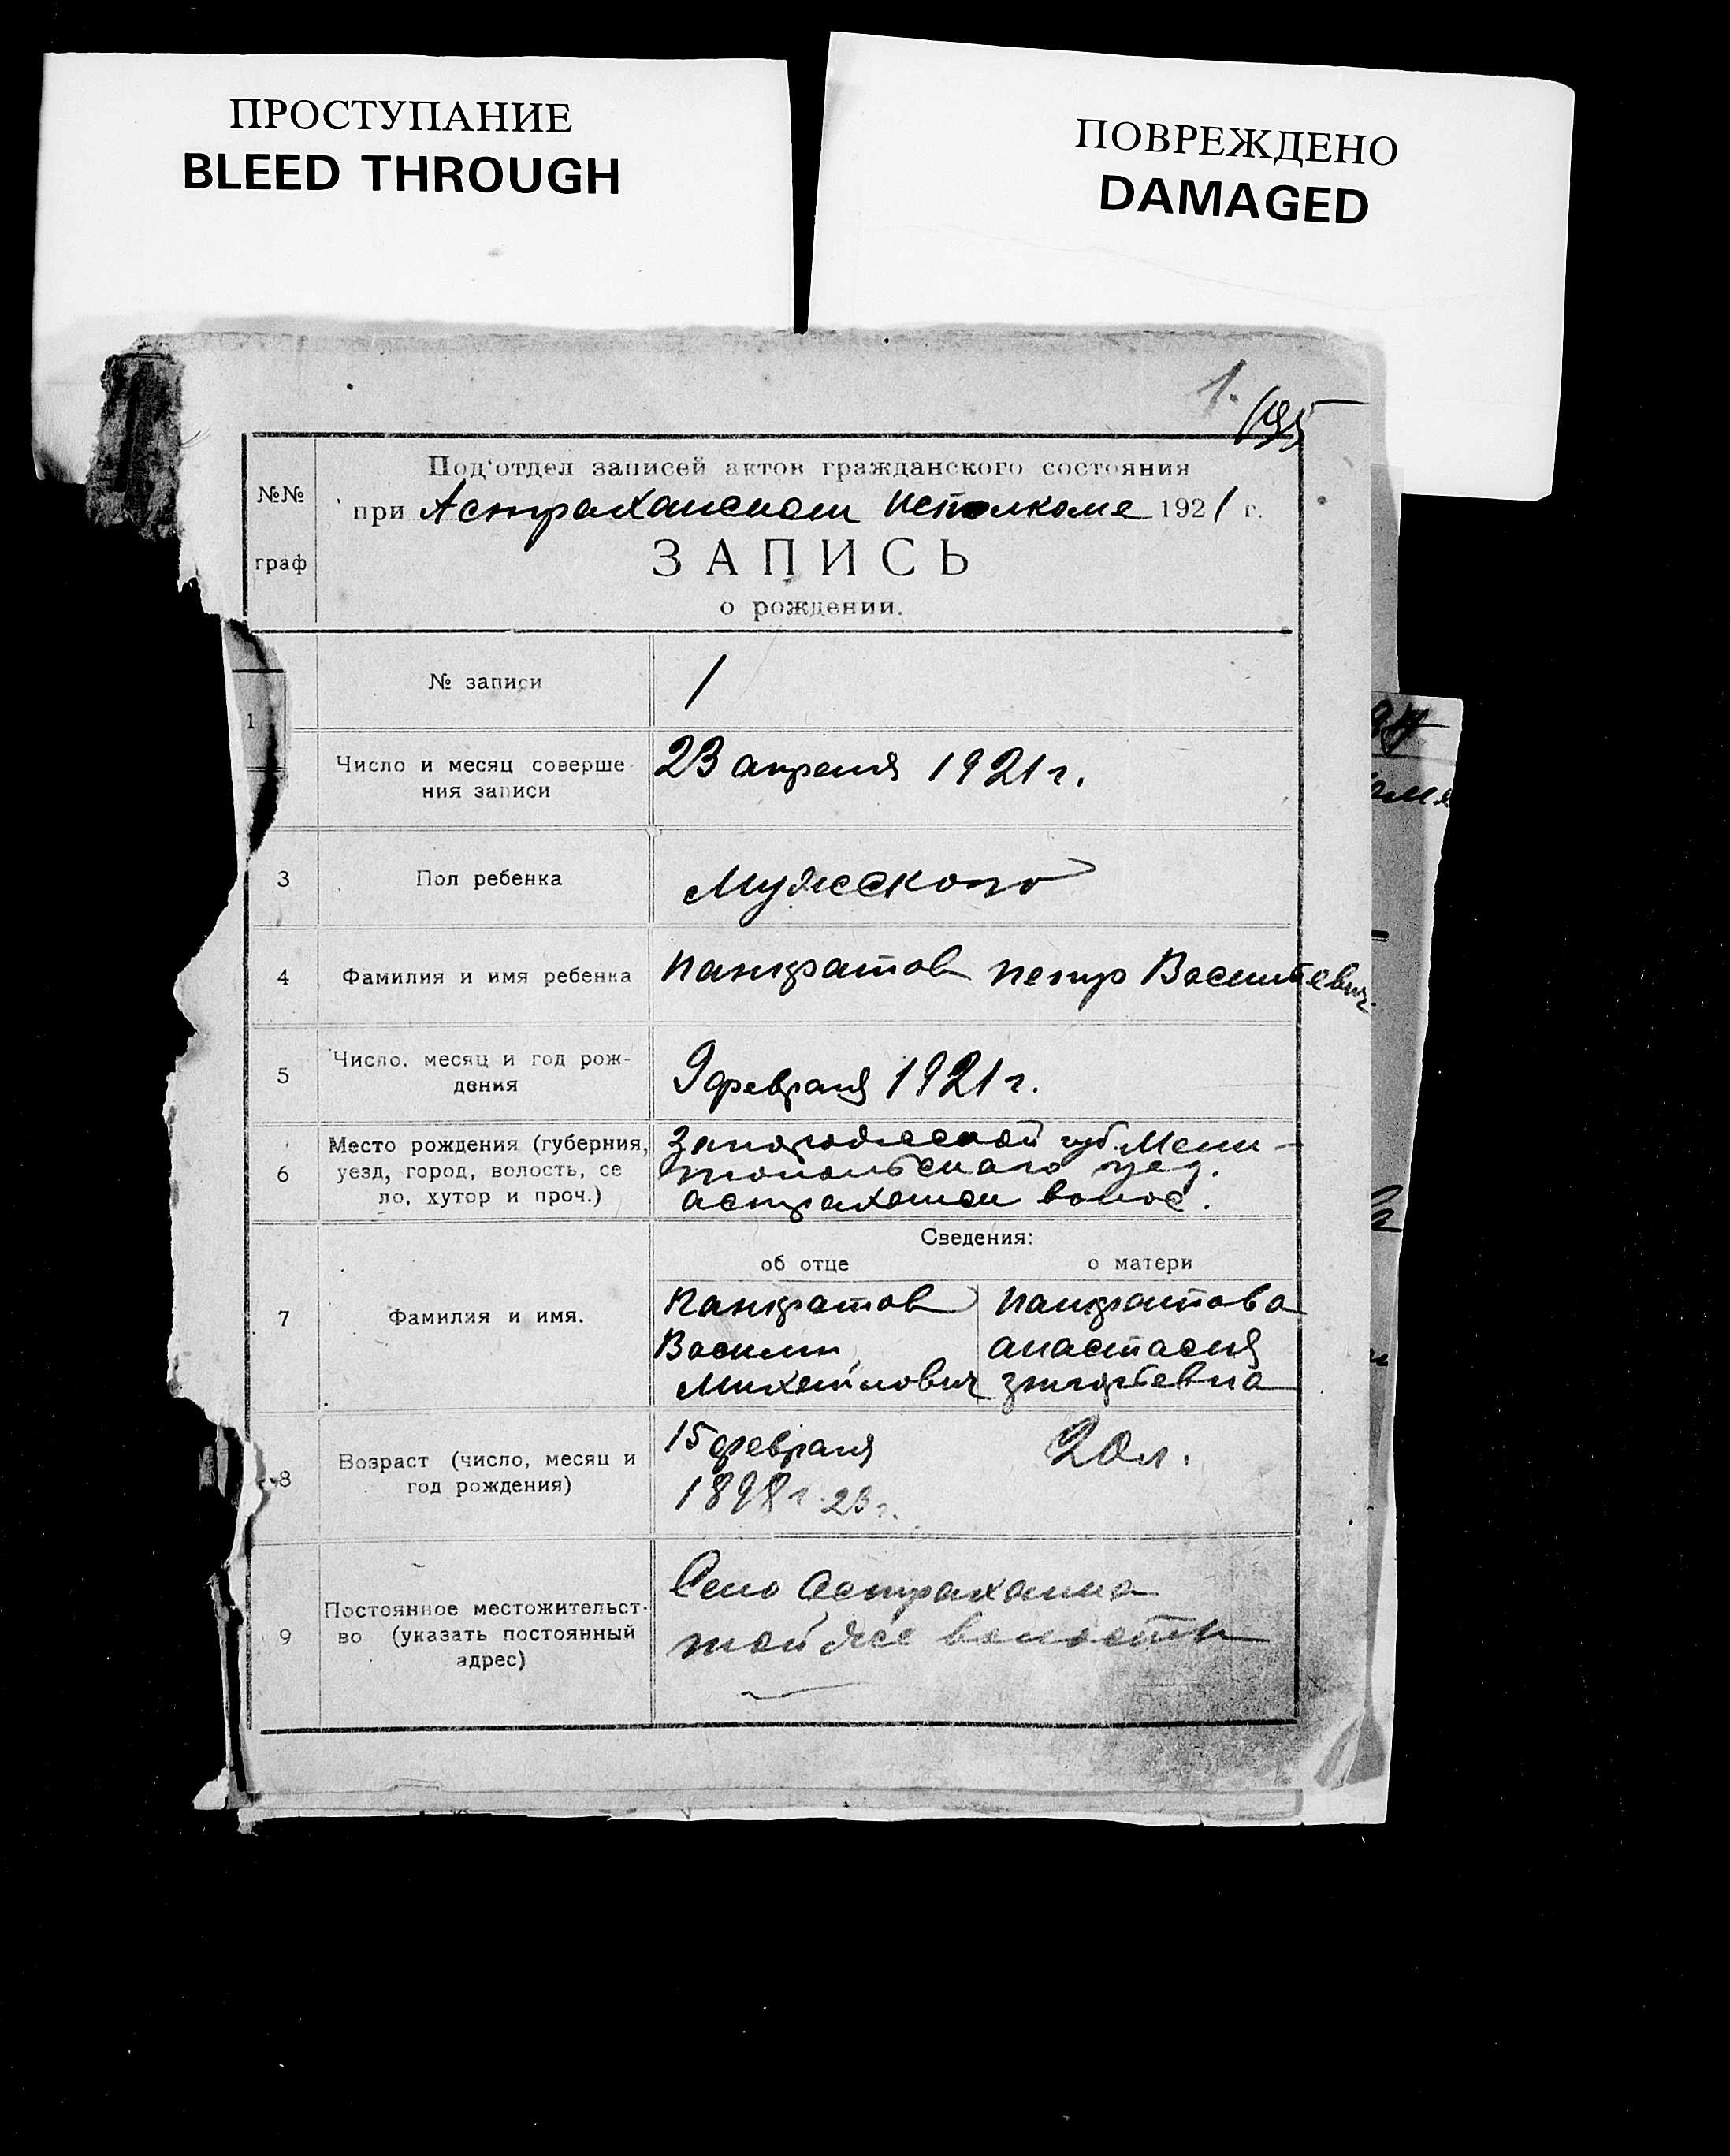 ПРОСТУПАНИЕ
BLEED THROUGH
ПОВРЕЖДЕНО
DAMAGED
1.
195
№№
граф
Под'отдел записей актов гражданского состояния
при Астраханском Исполкоме 1921 г.
ЗАПИСЬ
о рождении.
1
№ записи
1
Число и месяц соверше-
ния записи
23 апреля 1921 г.
3
Пол ребенка
Мужского
4
Фамилия и имя ребенка
Панкратов Петр Васильевич.
5
Число, месяц и год рож-
дения
9 февраля 1921 г.
6
Место рождения (губерния,
уезд, город, волость, се
ло, хутор и проч.)
губ. Мели-
топольскаго уез.
волос.
Сведения:
об отце
о матери
7
Фамилия и имя.
Панкратов
Василий
Михайлович
Панкратова
Анастасия
8
Возраст (число, месяц и
год рождения)
15 февраля
1898 г. 23 г.
20 л.
9
Постоянное местожительст-
во (указать постоянный
адрес)
Село Астраханка
той же волости